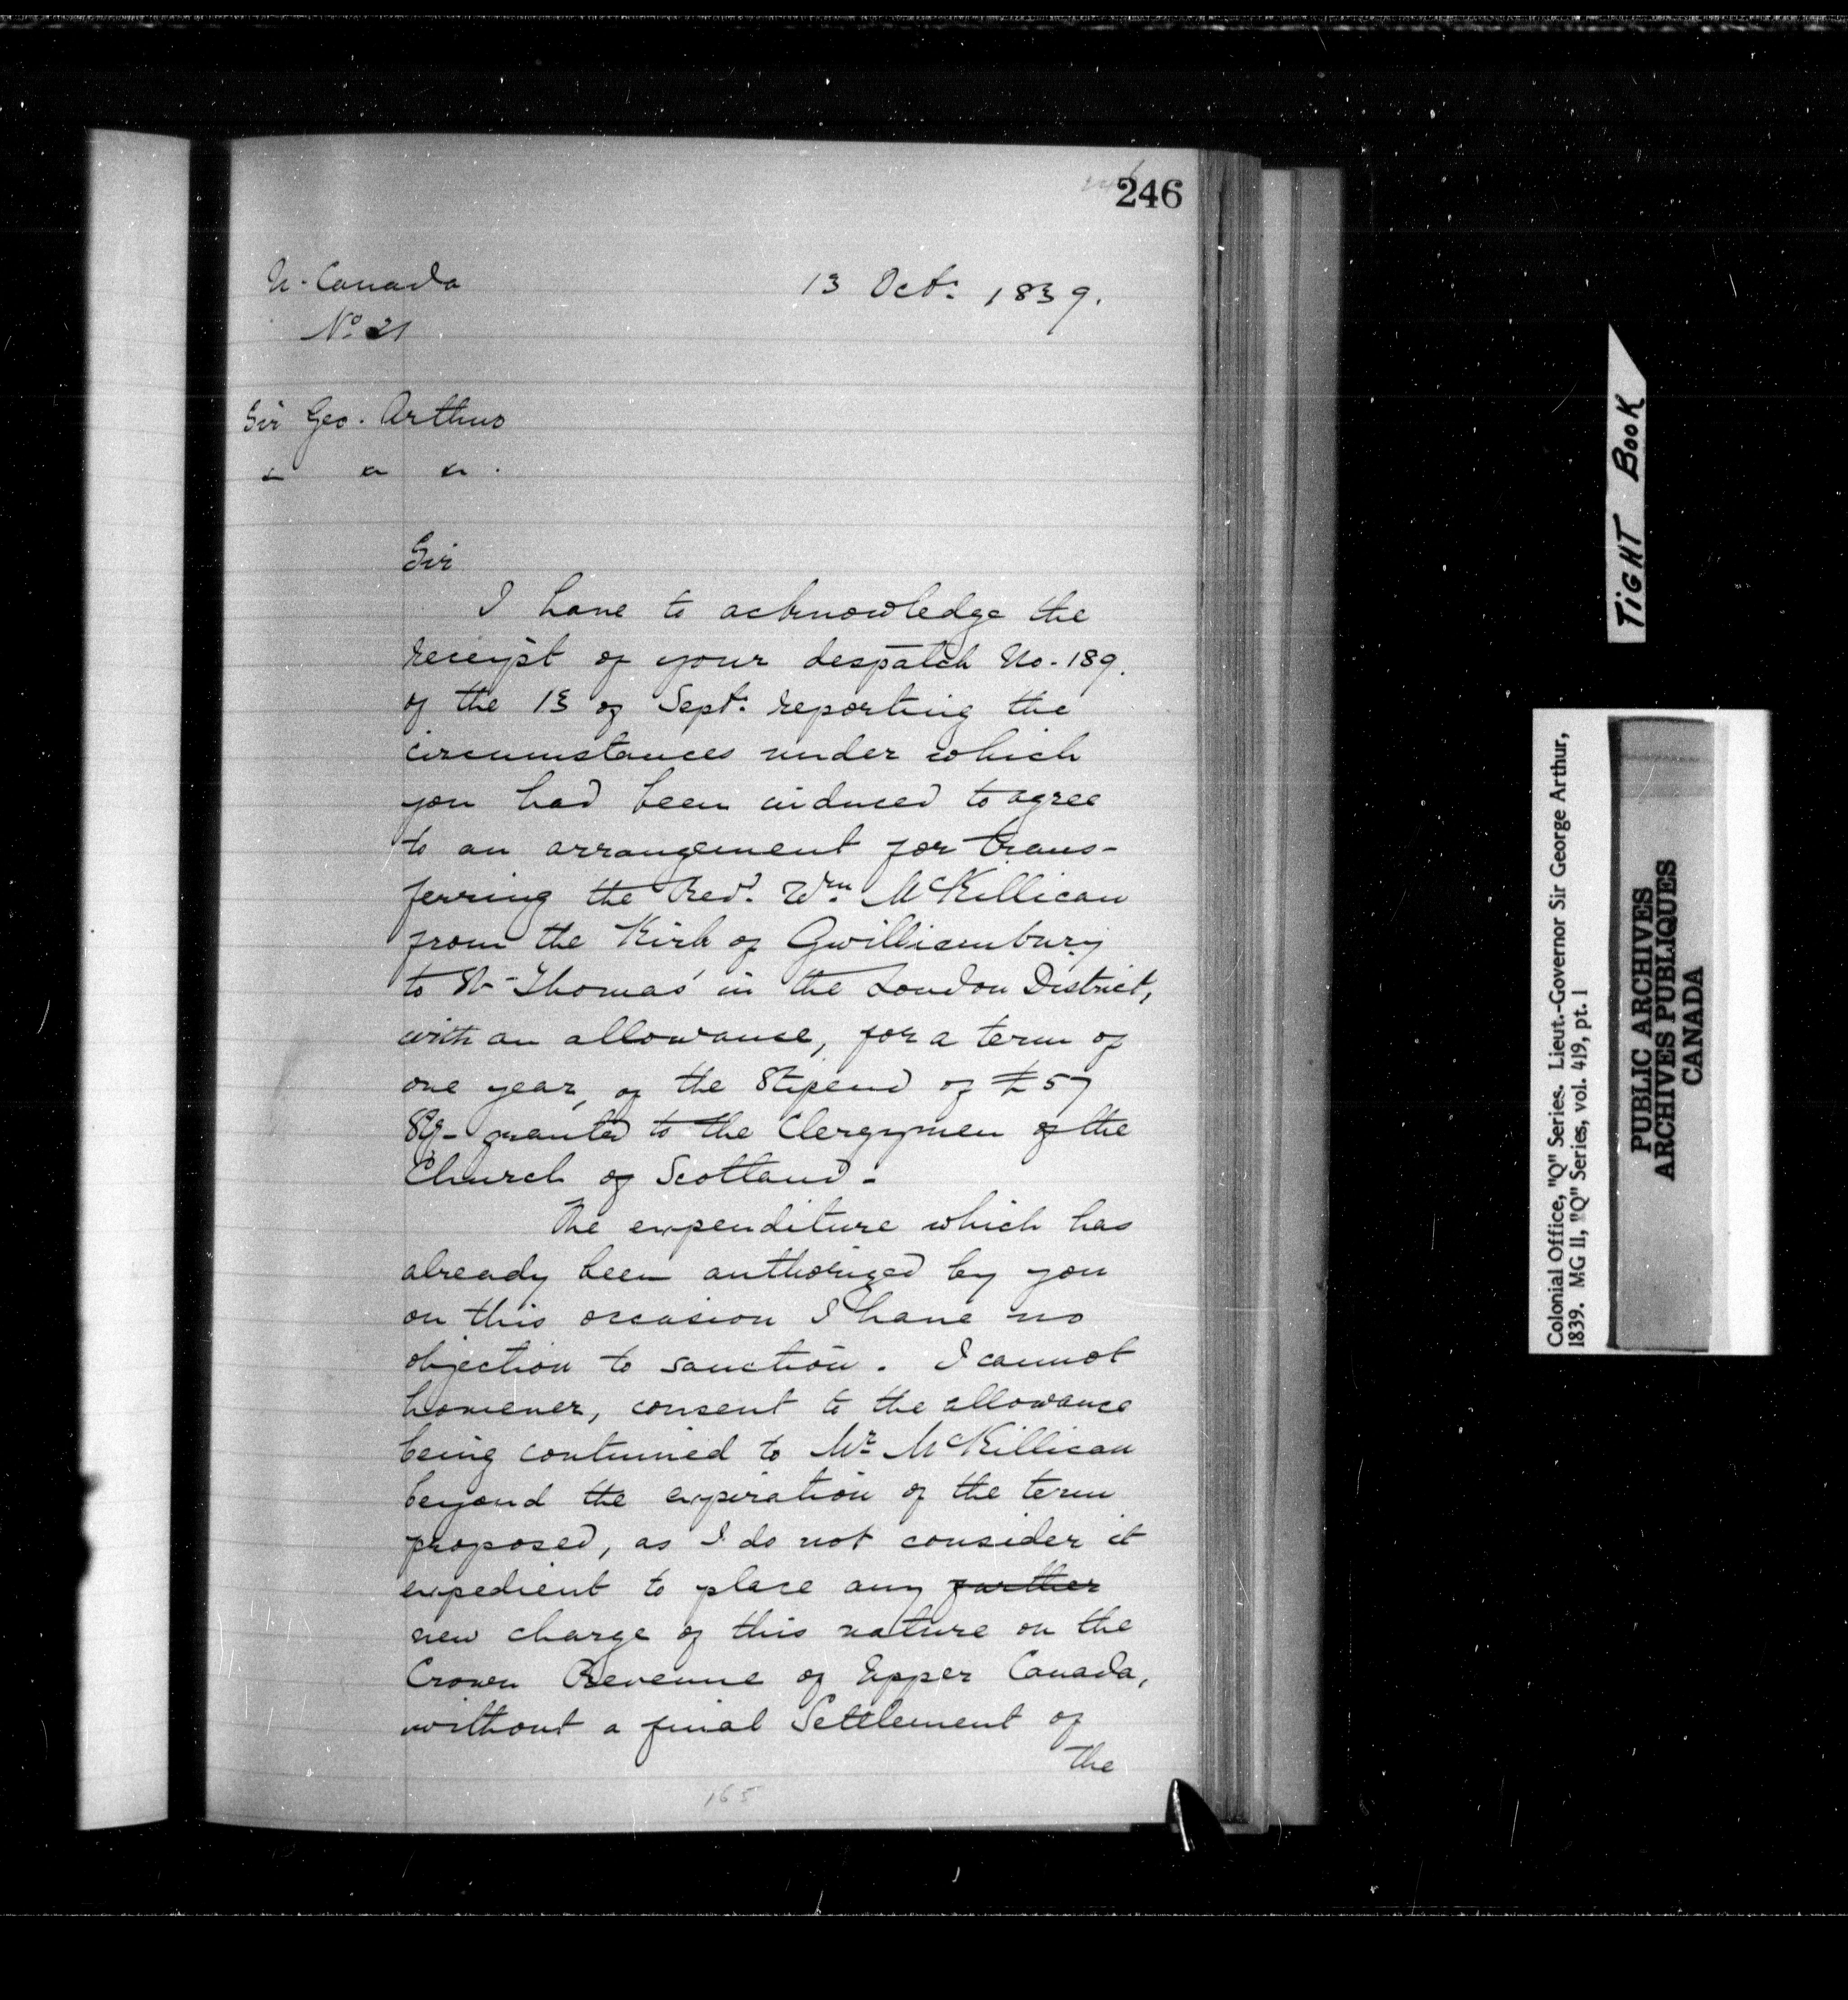 246
U. Canada
13 Oct: 1839.
No. 21
Sir Geo. Arthur
Sir
I have to acknowledge the
receipt of your despatch No. 189.
of the 13 of Sept: reporting the
circumstances under which
you had been induced to agree
to an arrangement for trans-
ferring the Revd. Wm. McKillican
from the Kirk of Gwillimbury
to St. Thomas' in the London District,
with an allowance, for a term of
one year, of the Stipend of £57
granted to the Clergymen of the
Church of Scotland.
The expenditure which has
already been authorized by you
on this occasion I have no
objection to sanction. I cannot
however, consent to the allowance
being continued to Mr. McKillican
beyond the expiration of the term
proposed, as I do not consider it
expedient to place any further
new charge of this nature on the
Crown Revenue of Upper Canada,
without a final Settlement of
the
165
TIGHT BOOK
Colonial Office, "Q" Series. Lieut.-Governor Sir George Arthur,
1839. MG 11, "Q" Series, vol. 419, pt. 1
PUBLIC ARCHIVES
ARCHIVES PUBLIQUES
CANADA